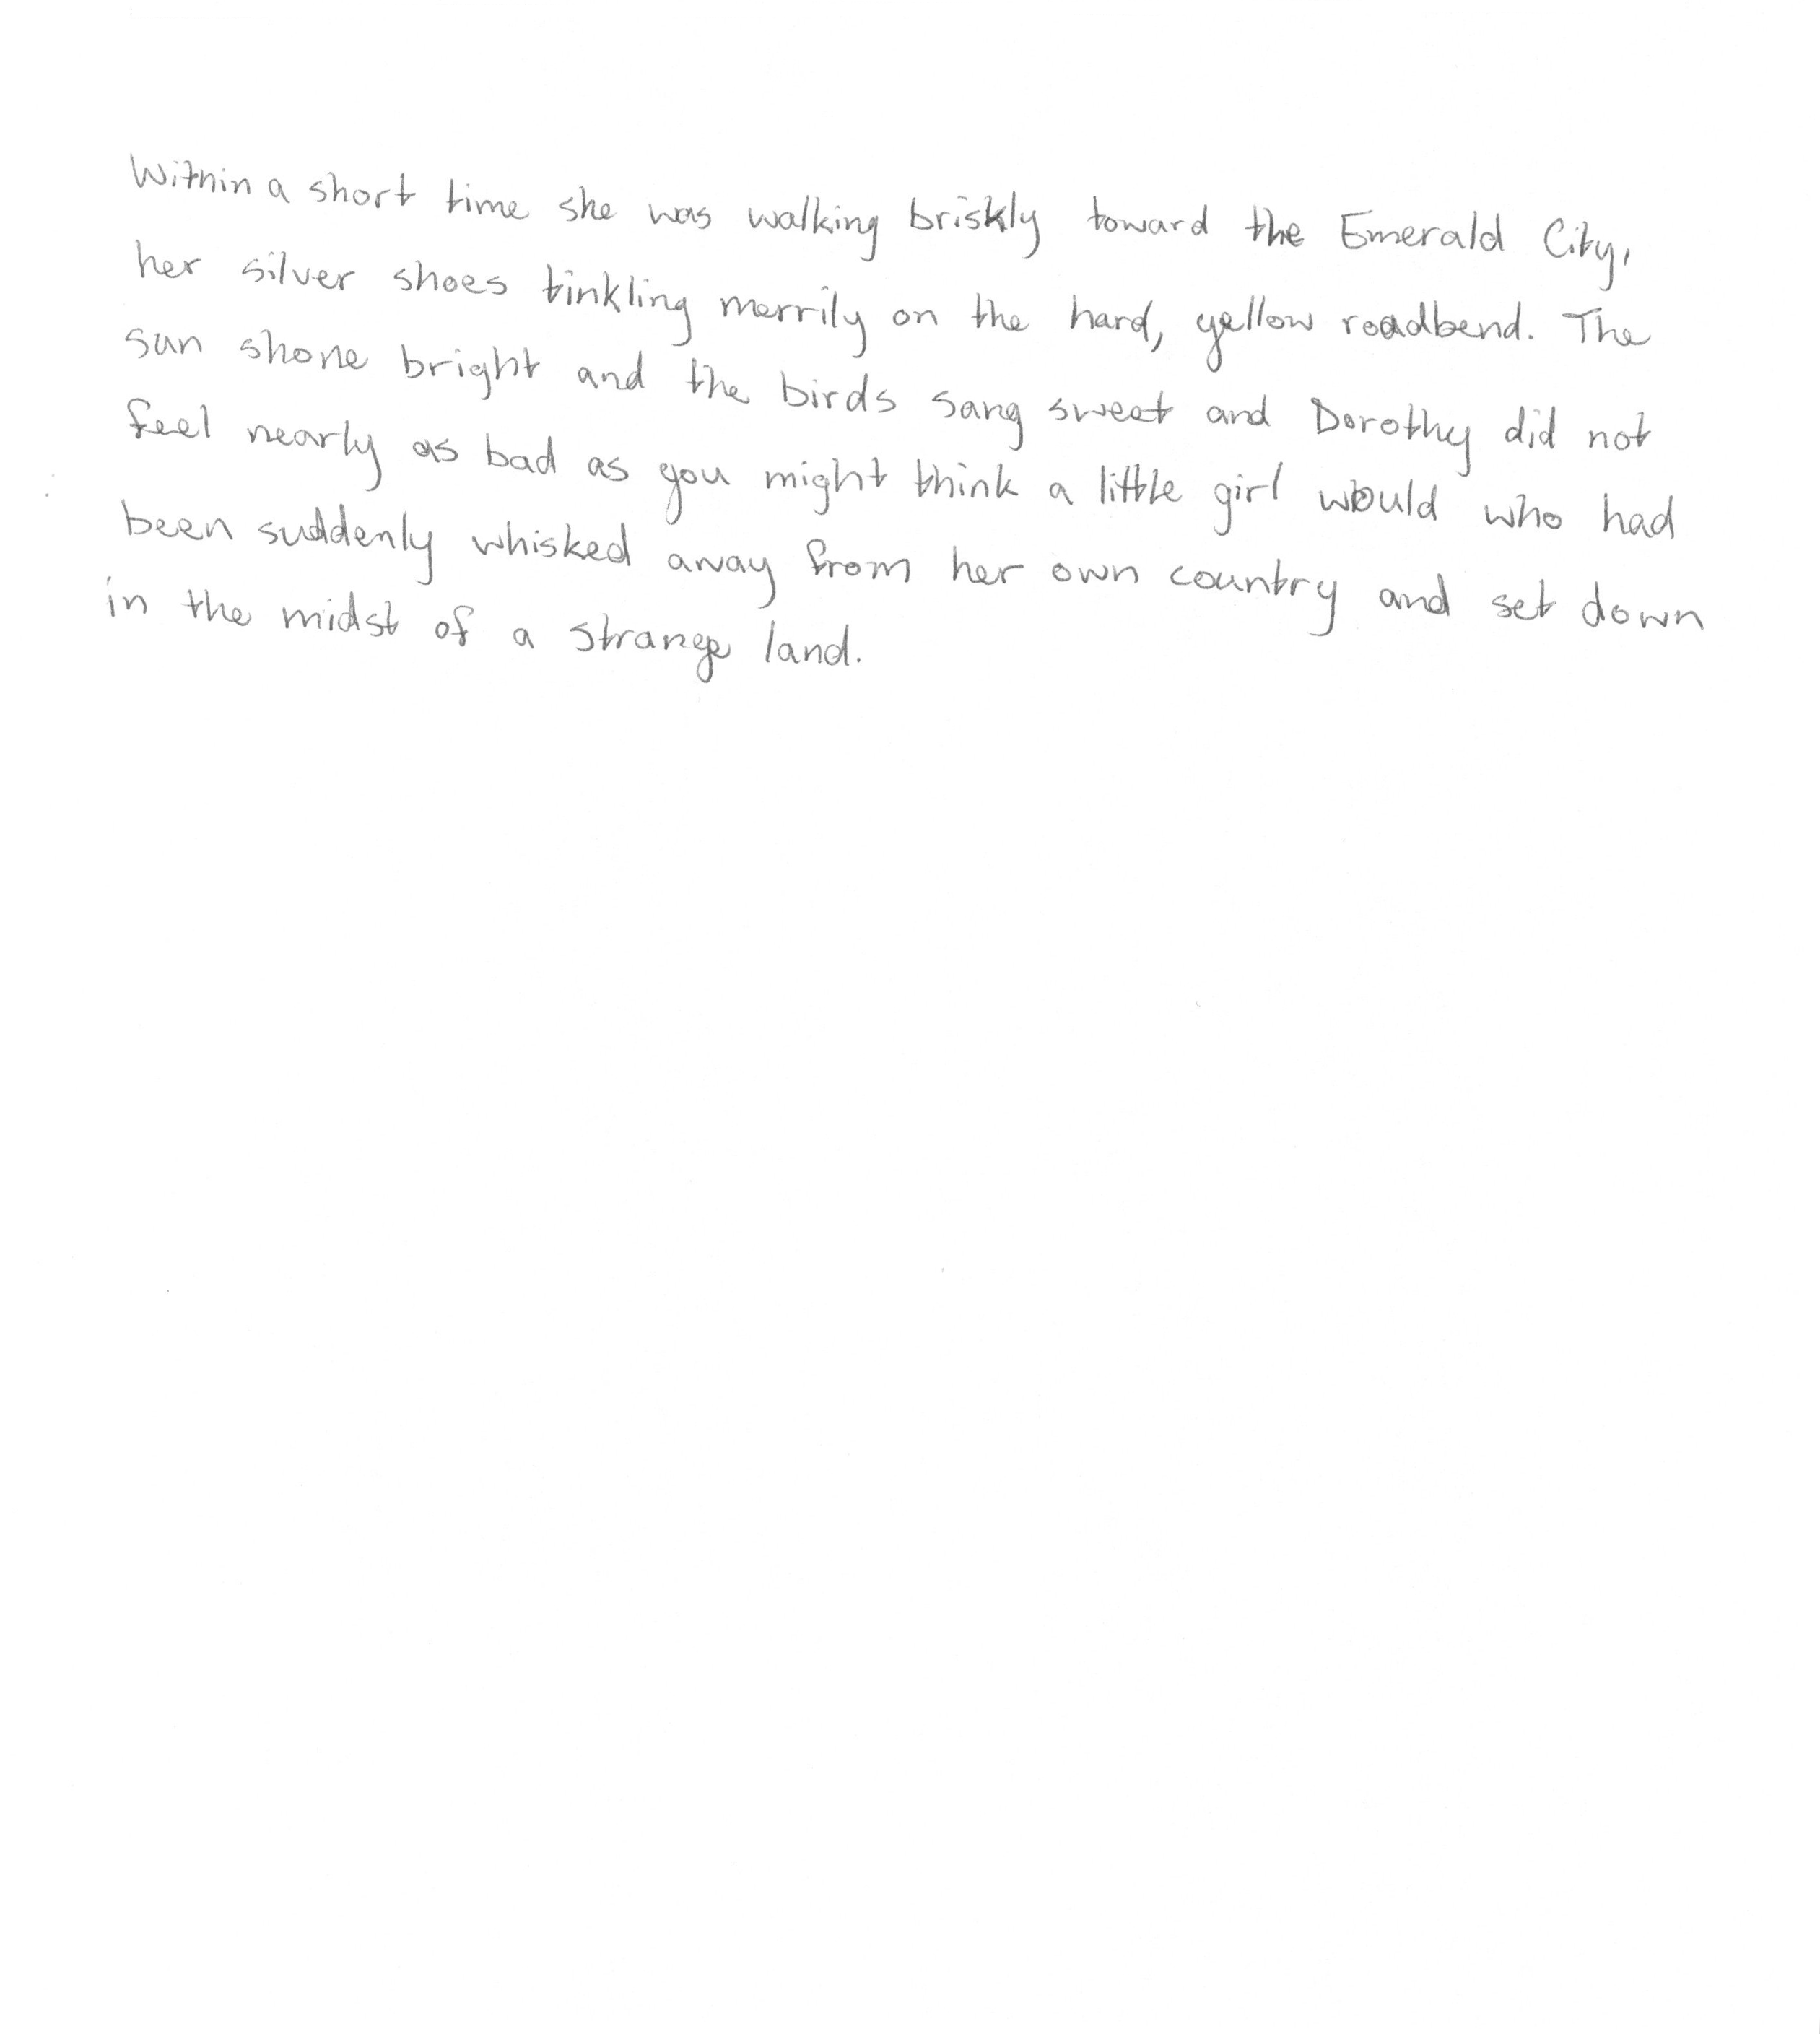 Within a short time she was walking briskly toward the Emerald City,
her silver shoes tinkling merrily on the hard, yellow roadbend. The
sun shone bright and the birds sang sweet and Dorothy did not
feel nearly as bad as you might think a little girl would who had
been suddenly whisked away from her own country and set down
in the midst of a strange land.